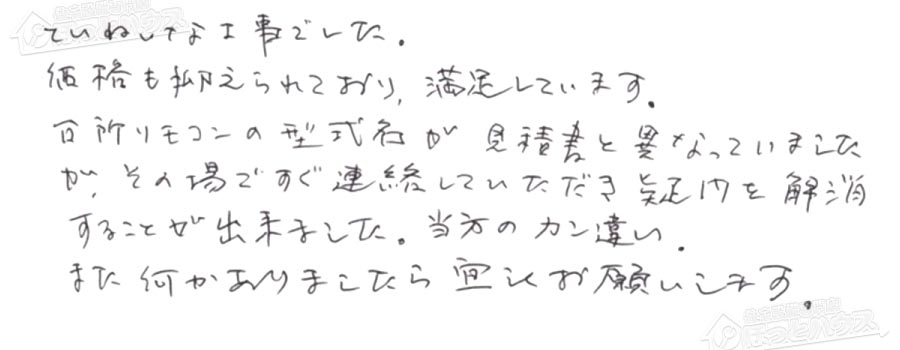 ていねいな工事でした。
価格も抑えられており、満足しています。
台所リモコンの型式名が見積書と異なっていました
が、その場ですぐ連絡していただき疑問を解消
することが出来ました。当方のカン違い。
また何かありましたら宜しくお願いします。
ほっとハウス